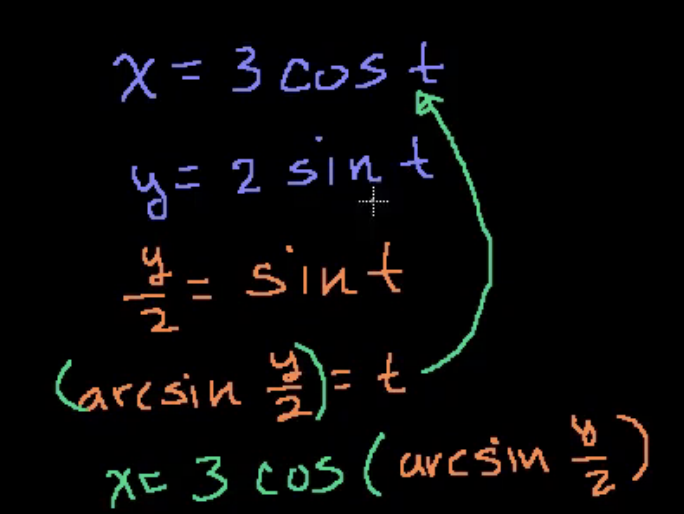 x = 3 cos t
y = 2 sin t
y/2 = sin t
(arcsin y/2) = t
x = 3 cos (arcsin y/2)